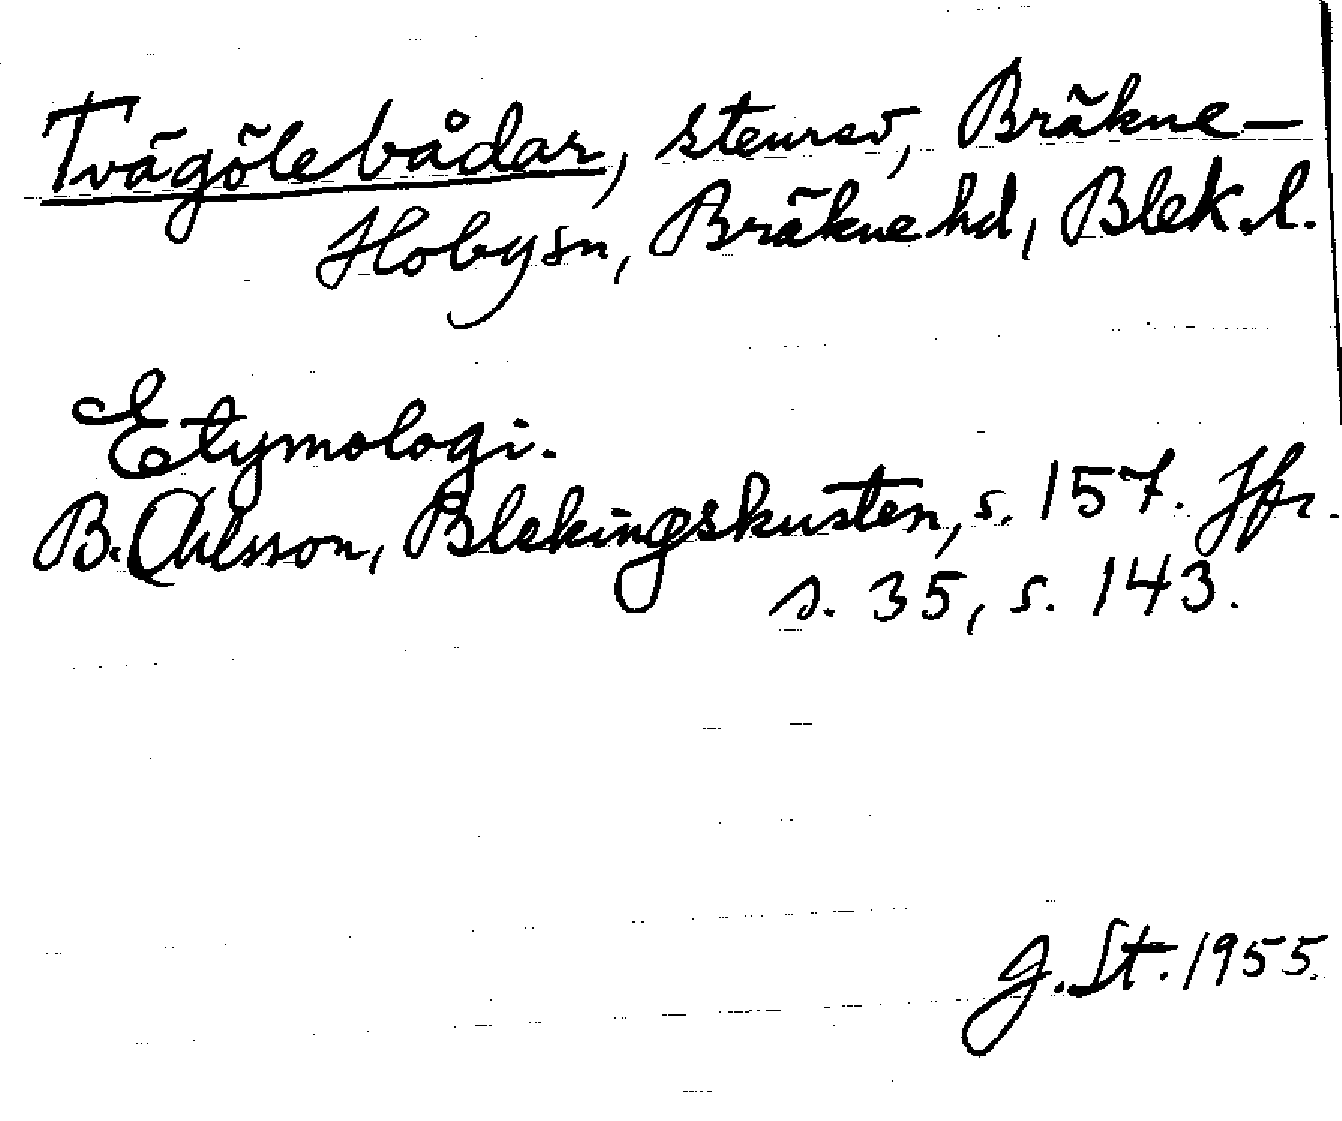 Tvägölebådar, stenrev, Bräkne-
Hobysn, Bräknehd, Blek.l.
Etymologi.
B. Ohlsson, Blekingskusten, s. 157. Jfr.
s. 35, s. 143.
G. St. 1955